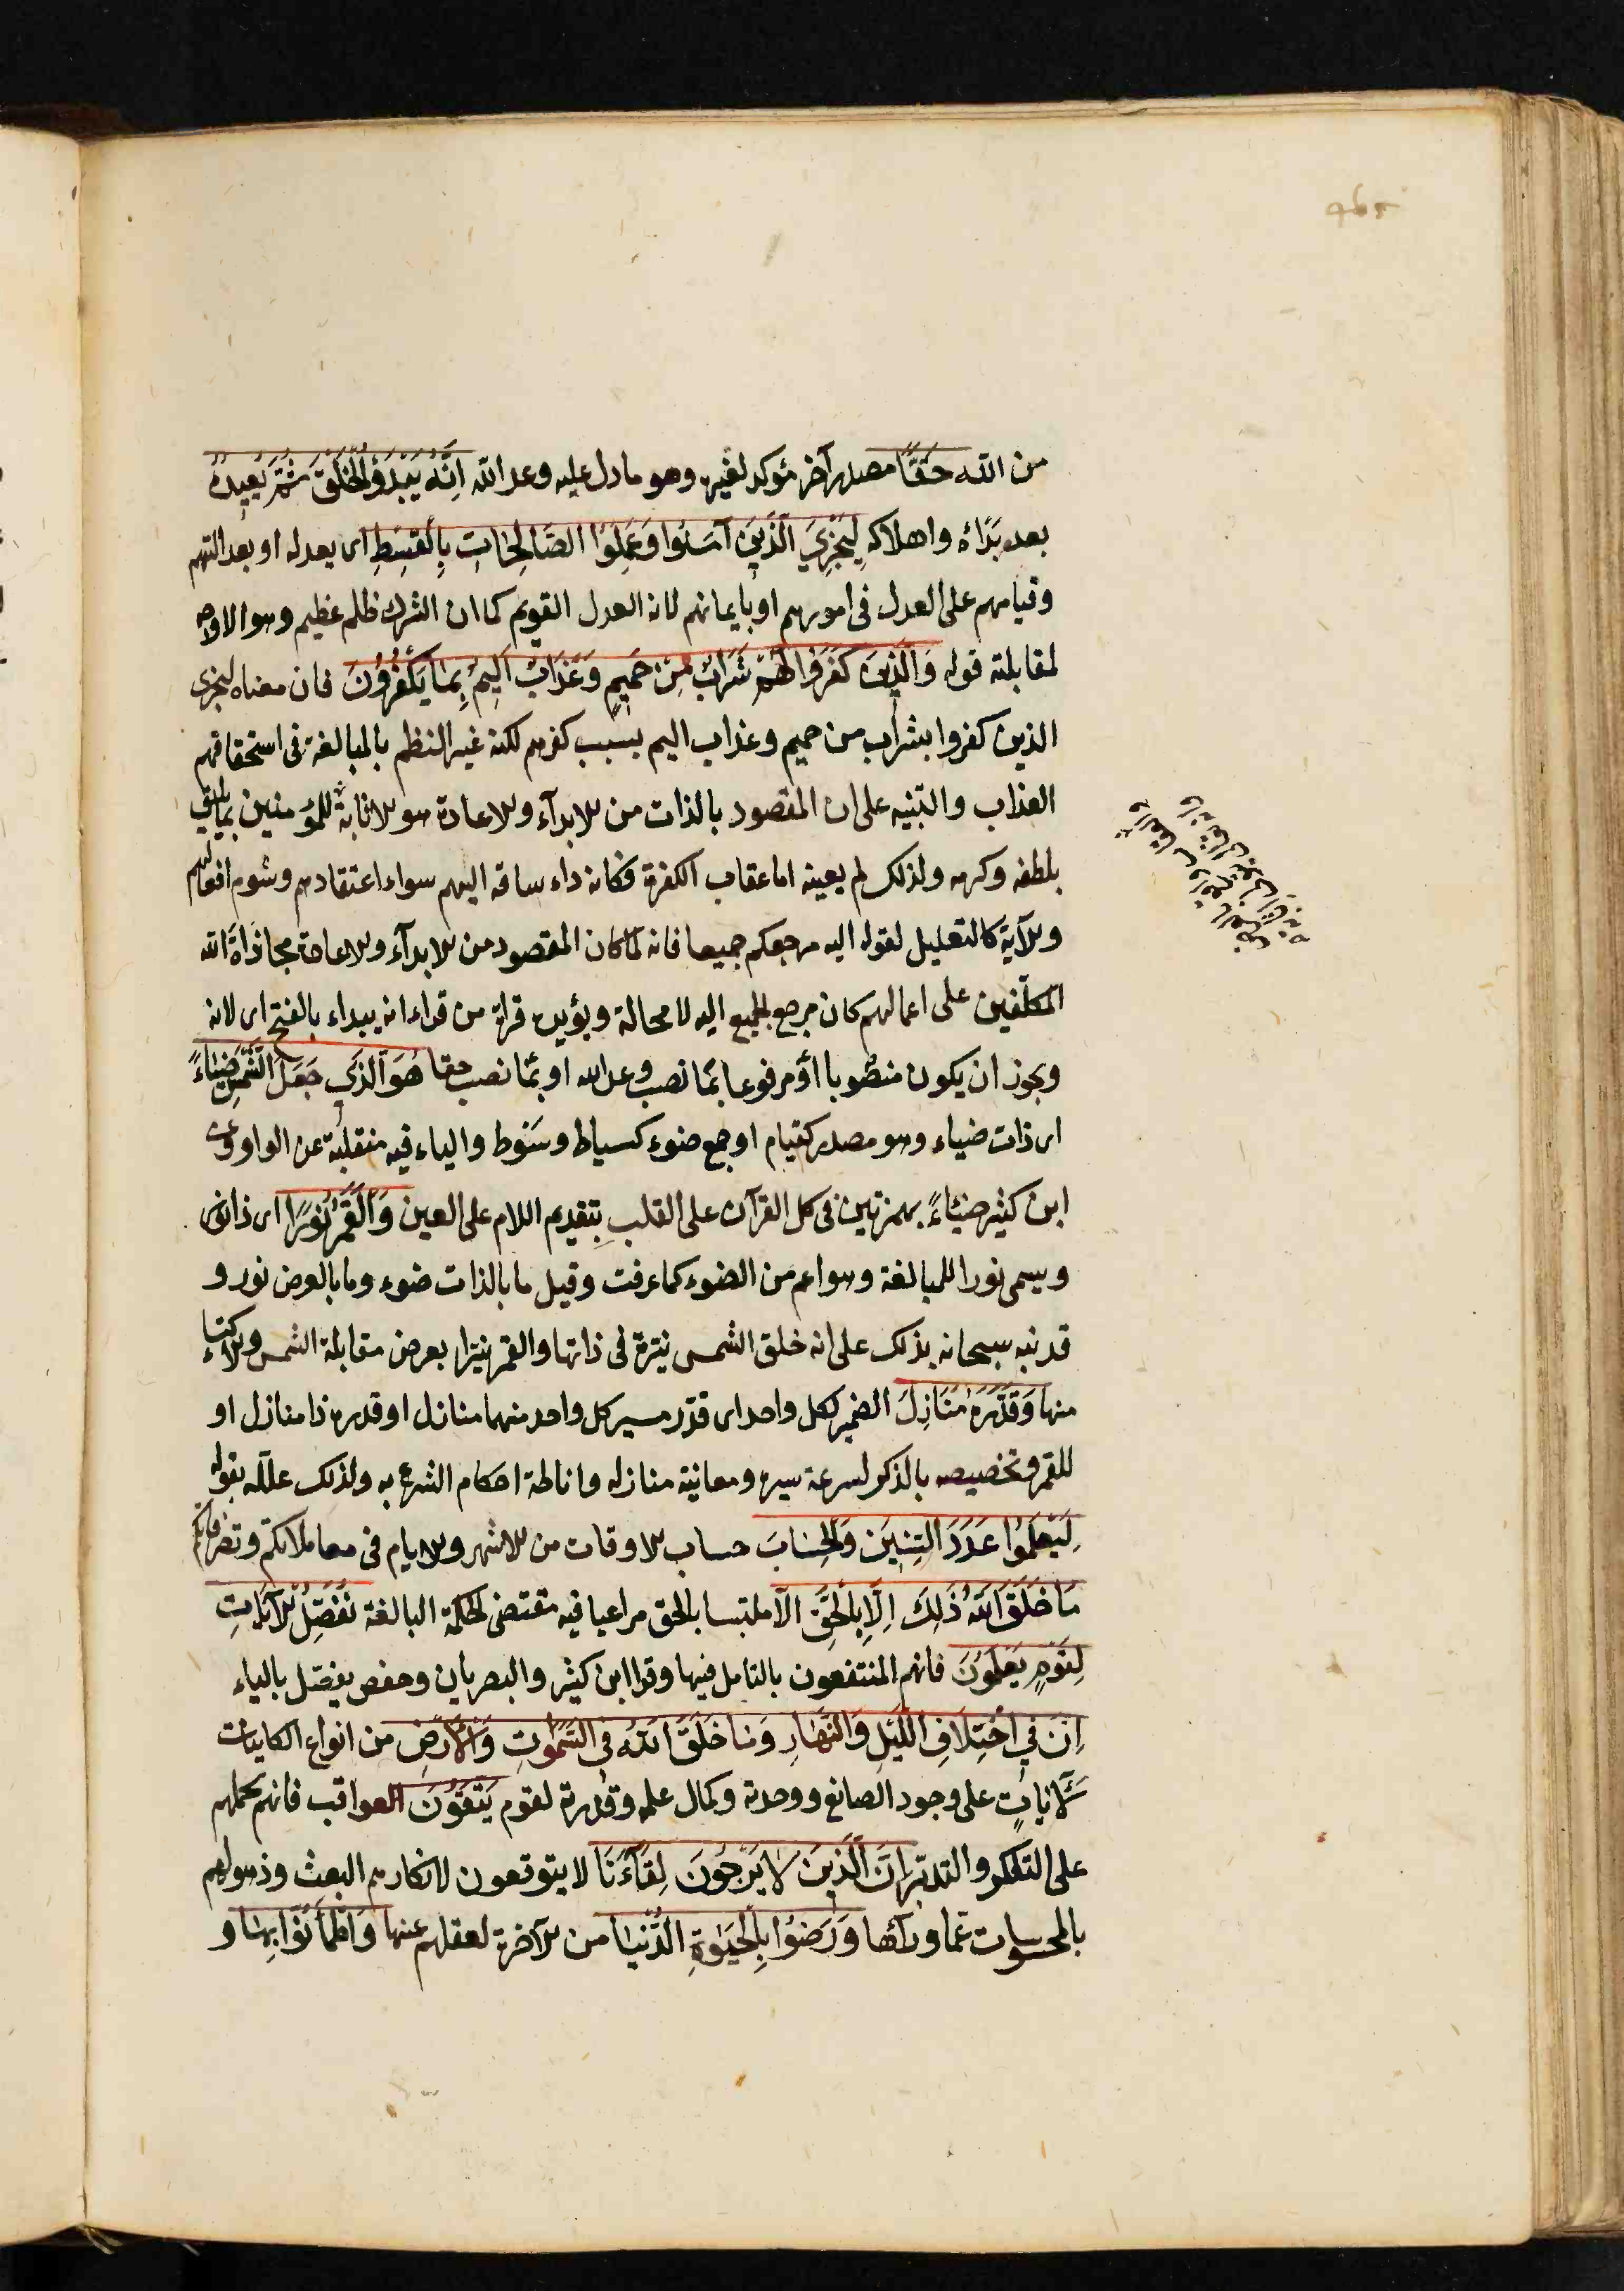 من الله حَقًّا مصدر آخر مؤكد لغيره وهو ما دل عليه وعد الله اِنَّهُ يَبْدَؤُ الْخَلْقَ ثُمَّ يُعِيدُهُ
بعد بَدْاءه واهلاكه لِيَجْزِيَ الَّذِينَ آمَنُوا وَعَمِلُوا الصَّالِحَاتِ بِالْقِسْطِ اى بعدله او بعدالتهم
وقيامهم على العدل فى امورهم او بايمانهم لانه العدل القويم كما ان الشرك ظلم عظيم وهو الاوجه
لمقابلة قوله وَالَّذِينَ كَفَرُوا لَهُمْ شَرَابٌ مِنْ حَمِيمٍ وَعَذَابٌ اَلِيمٌ بِمَا يَكْفُرُونَ فان معناه ليجزى
الذين كفروا بشراب من حميم وعذاب اليم بسبب كفرهم لكنه غير النظم بالمبالغة فى استحقاقهم
العذاب والتنبيه على ان المقصود بالذات من الابدآء والاعادة هو الاثابة للمؤمنين بما يليق
بلطفه وكرمه ولذلك لم يعينه اما عقاب الكفرة فكانه داء ساقه اليهم سواء اعتقادهم وشوم افعالهم
والآية كالتعليل لقوله اليه مرجعكم جميعا فانه لما كان المقصود من الابدآء والاعادة مجازاة الله
المكلفين على اعمالهم كان مرجع الجميع اليه لا محالة ويؤيده قراة من قراء انه يبداء بالفتح اى لانه
ويجوز ان يكون منصوبا او مرفوعا بما نصب وعد الله او بما نصب حقا هُوَ الَّذِي جَعَلَ الشَّمْسَ ضِيَاءً
اى ذات ضياء وهو مصدر كقيام او جمع ضوء كسياط وسَوْط والياء فيه منقلبة عن الواو وعن
ابن كثير ضئاءً بهمزتين فى كل القرآن على القلب بتقديم اللام على العين وَالْقَمَرَ نُورًا اى ذا نور
ويسمى نورا للمبالغة وهو اعم من الضوء كما عرفت وقيل ما بالذات ضوء وما بالعرض نور و
قد نبه سبحانه بذلك على انه خلق الشمس نيّرة فى ذاتها والقمر نيّرا بعرض مقابلة الشمس والاكتساء
منها وَقَدَّرَهُ مَنَازِلَ الضمير لكل واحد اى قدّر مسير كل واحد منهما منازل او قدره ذا منازل او
للقمر وتخصيصه بالذكر لسرعة سيره ومعاينة منازله واناطة احكام الشرع به ولذلك علله بقوله
لِتَعْلَمُوا عَدَدَ السِّنِينَ وَالْحِسَابَ حساب الاوقات من الاشهر والايام فى معاملاتكم وتصرفاتكم
مَا خَلَقَ اللهُ ذَلِكَ اِلَّا بِالْحَقِّ الا ملتبسا بالحق مراعيا فيه مقتضى الحكمة البالغة نُفَصِّلُ الْآيَاتِ
لِقَوْمٍ يَعْلَمُونَ فانهم المنتفعون بالتامل فيها وقرا ابن كثير والبصريان وحفص يفصّل بالياء
اِنَّ فِي اخْتِلَافِ اللَّيْلِ وَالنَّهَارِ وَمَا خَلَقَ اللهُ فِي السَّمٰوَاتِ وَالْاَرْضِ من انواع الكاينات
لَآيَاتٍ على وجود الصانع ووحدته وكمال علمه وقدرته لقوم يَتَّقُونَ العواقب فانه يحملهم
على التفكر والتدبر اِنَّ الَّذِينَ لَا يَرْجُونَ لِقَاءَنَا لا يتوقعون لانكارهم البعث وذهولهم
بالمحسوسات عما ورآءها وَرَضُوا بِالْحَيٰوةِ الدُّنْيَا من الآخرة لغفلهم عنها وَاطْمَأَنُّوا بِهَا و